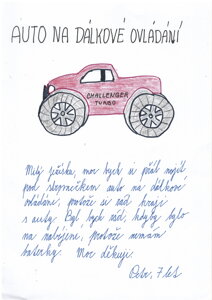 AUTO NA DÁLKOVÉ OVLÁDÁNÍ
CHALLENGER
TURBO
Milý Ježíšku, moc bych si přál najít
pod stromečkem auto na dálkové
ovládání, protože si rád hraji
s auty. Byl bych rád, kdyby bylo
na nabíjení, protože nemám
baterky. Moc děkuji.
Petr, 7 let